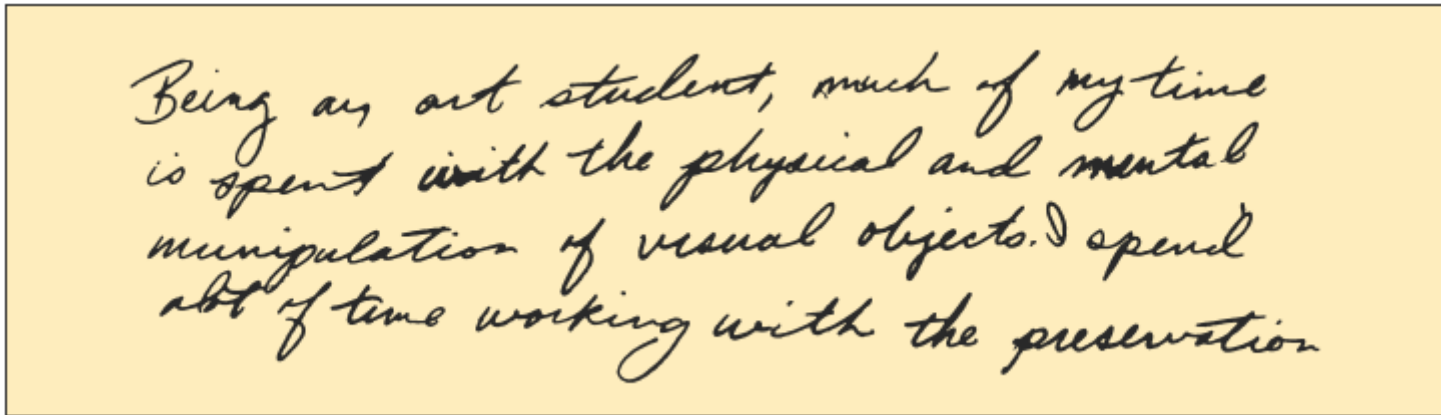 Being an art student, much of my time
is spent with the physical and mental
manipulation of visual objects. I spend
alot of time working with the preservation